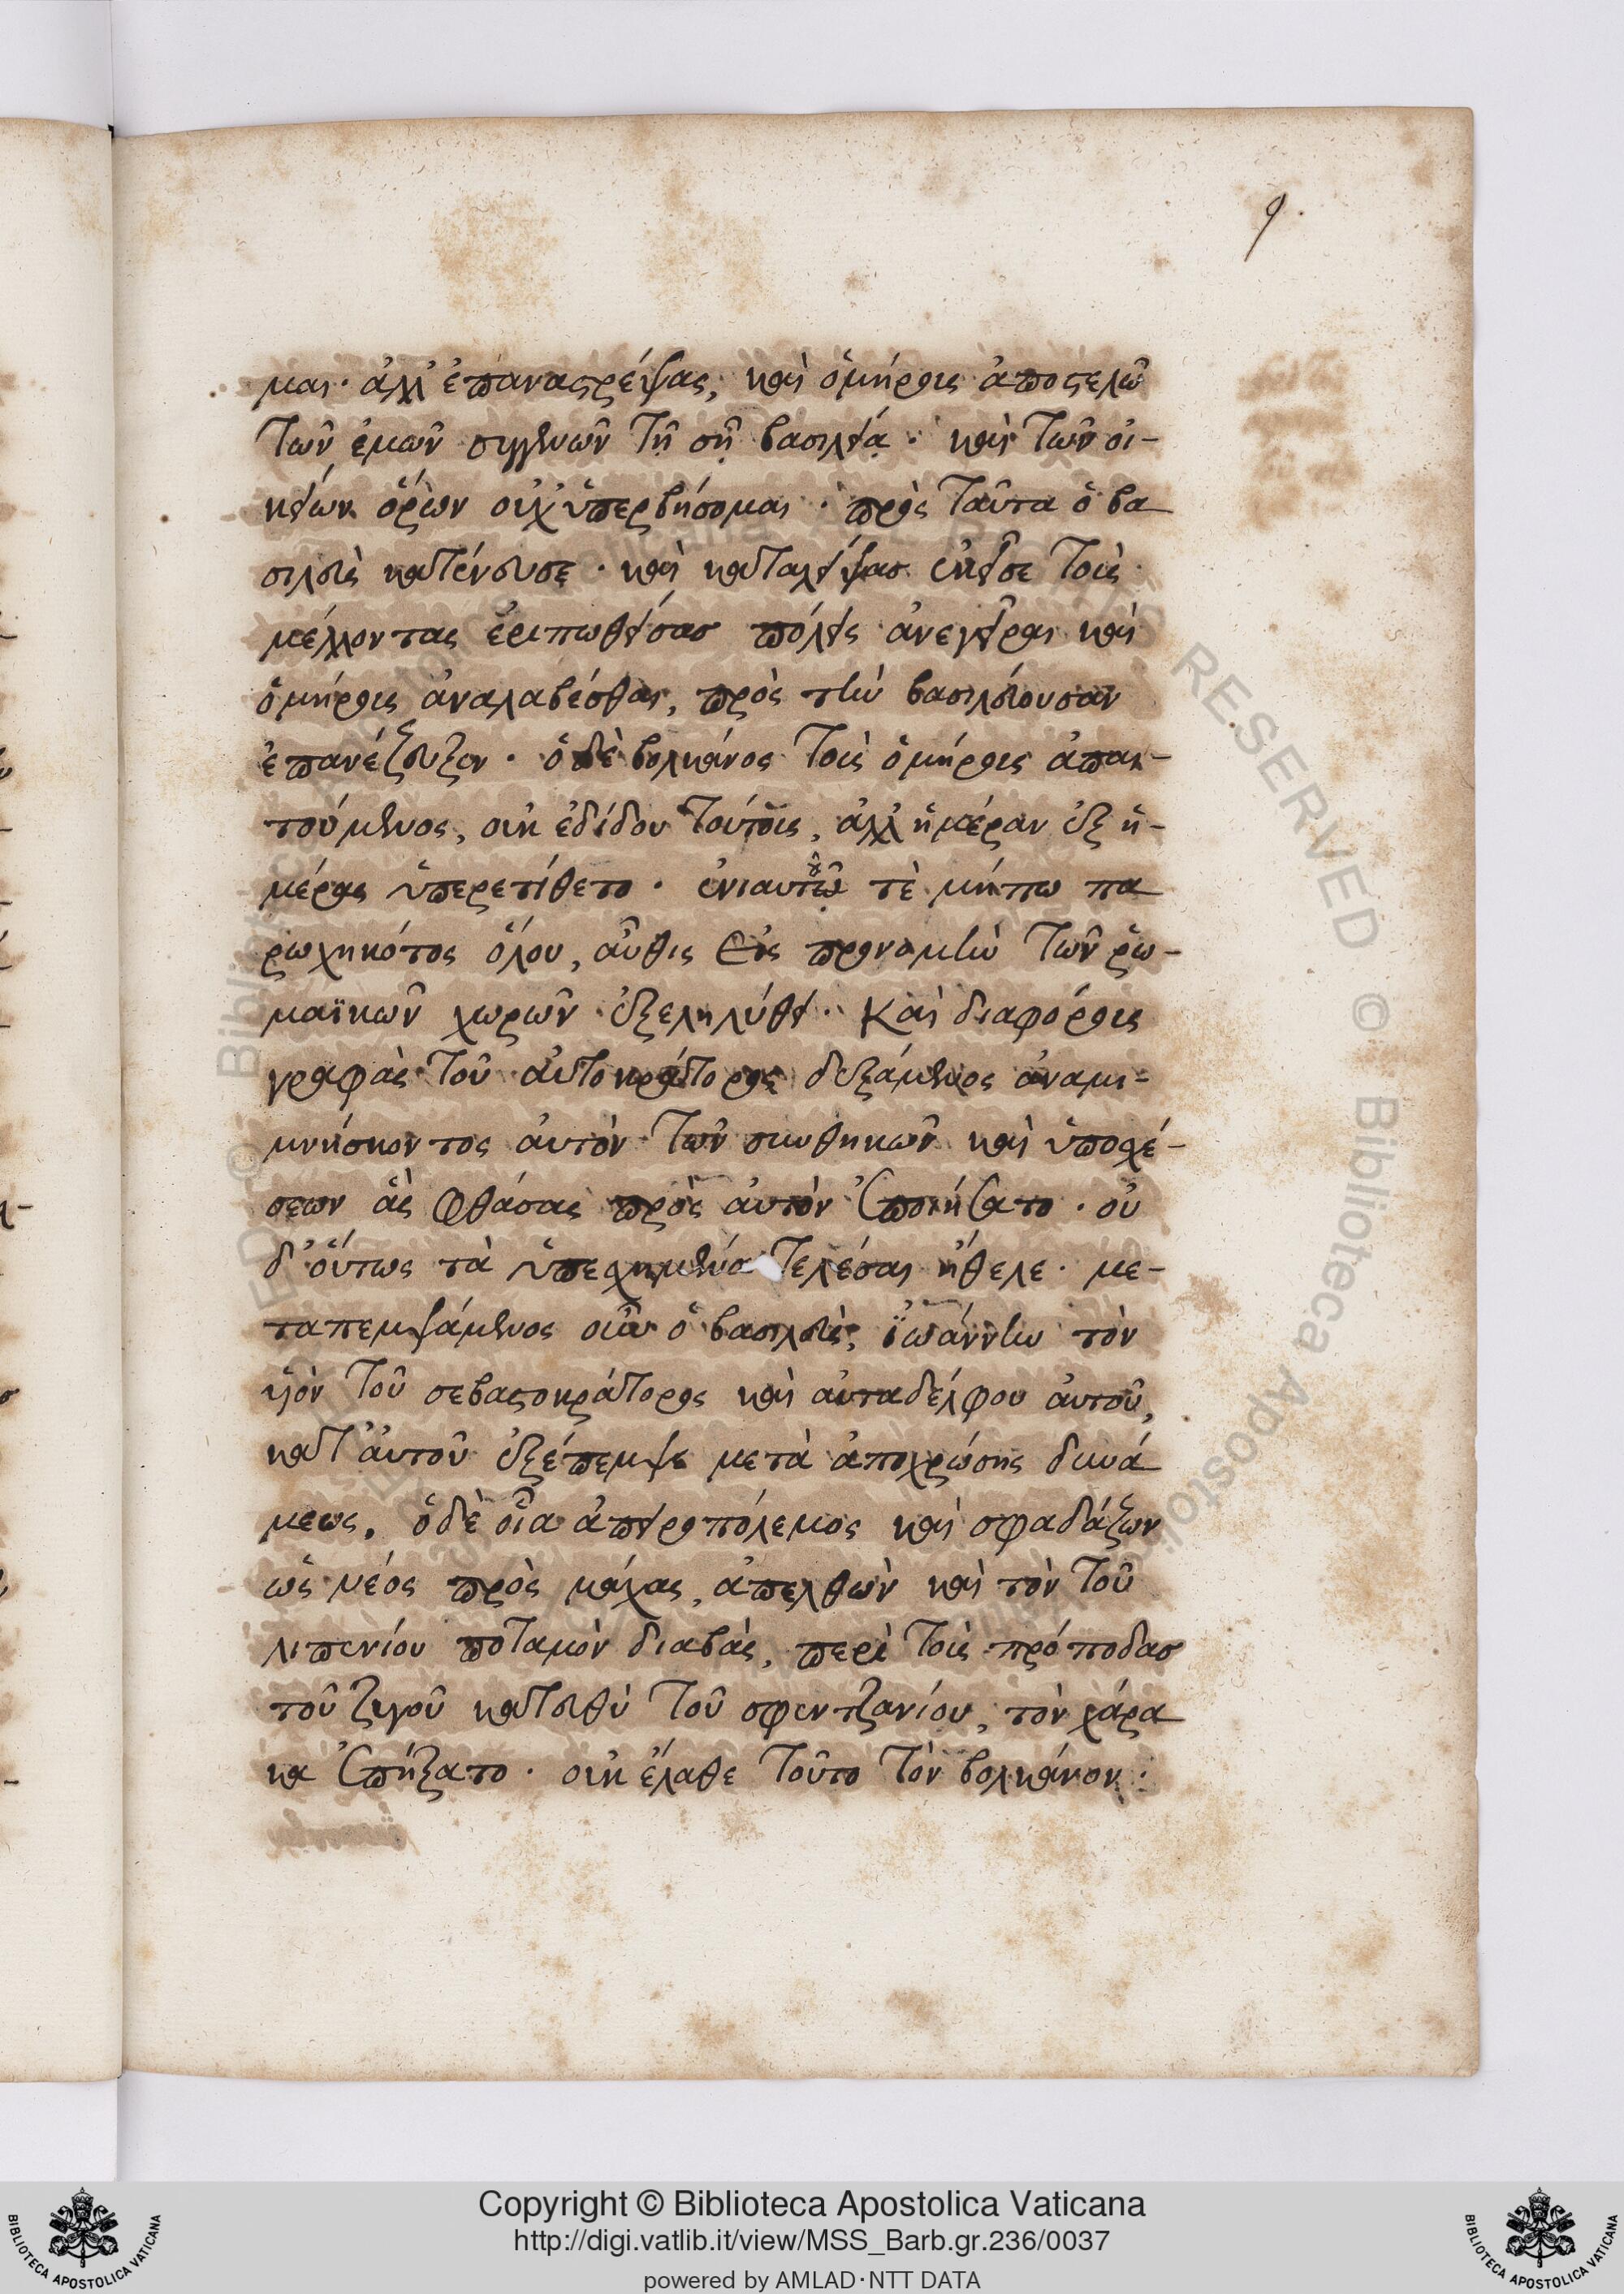 9.
μαι· ἀλλ' ἐπαναστρέψας, καὶ ὁμήρους ἀποστελῶ
τῶν ἐμῶν συγγενῶν τῇ σῇ βασιλεία· καὶ τῶν οἰ-
κείων ὁρίων οὐχ ὑπερβήσομαι· πρὸς ταῦτα ὁ βα
σιλεὺς κατένευσε· καὶ καταλείψας ἐκεῖσε τοὺς
μέλλοντας ἐριπωθείσας πόλεις ἀνεγεῖραι καὶ
ὁμήρους ἀναλαβέσθαι, πρὸς τὴν βασιλεύουσαν
ἐπανέζευξεν· ὁ δὲ βολκάνος τοὺς ὁμήρους ἀπαι-
τούμενος, οὐκ ἐδίδου τούτους, ἀλλ' ἡμέραν ἐξ ἡ-
μέρας ὑπερετίθετο· ἐνιαυτοῦ τὲ μήπω πα
ρωχηκότος ὅλου, αὖθις εἰς προνομὴν τῶν ῥω-
μαϊκῶν χωρῶν ἐξεληλύθει· Καὶ διαφόρους
γραφὰς τοῦ αὐτοκράτορος δεξάμενος ἀναμι-
μνήσκοντος αὐτὸν τῶν συνθηκῶν καὶ ὑποσχέ-
σεων ἃς φθάσας πρὸς αὐτὸν ἐποιήσατο· οὐ
δ' οὕτως τὰ ὑπεσχημένα τελέσαι ἤθελε· με-
ταπεμψάμενος οὖν ὁ βασιλεὺς, ἰωάννην τὸν
υἱὸν τοῦ σεβαστοκράτορος καὶ αὐταδέλφου αὐτοῦ,
κατ' αὐτοῦ ἐξέπεμψε μετὰ ἀποχρώσης δυνά
μεως. ὁ δὲ οἷα ἀπειροπόλεμος καὶ σφαδάζων
ὡς νέος πρὸς μάχας, ἀπελθὼν καὶ τὸν τοῦ
λιπενίου ποταμὸν διαβὰς, περὶ τοὺς πρόποδας
τοῦ ζυγοῦ κατευθὺ τοῦ σφεντζανίου, τὸν χάρα
κα ἐπήξατο· οὐκ ἔλαθε τοῦτο τὸν βολκάνον·
Copyright © Biblioteca Apostolica Vaticana
http://digi.vatlib.it/view/MSS_Barb.gr.236/0037
powered by AMLAD·NTT DATA
BIBLIOTECA APOSTOLICA VATICANA
BIBLIOTECA APOSTOLICA VATICANA